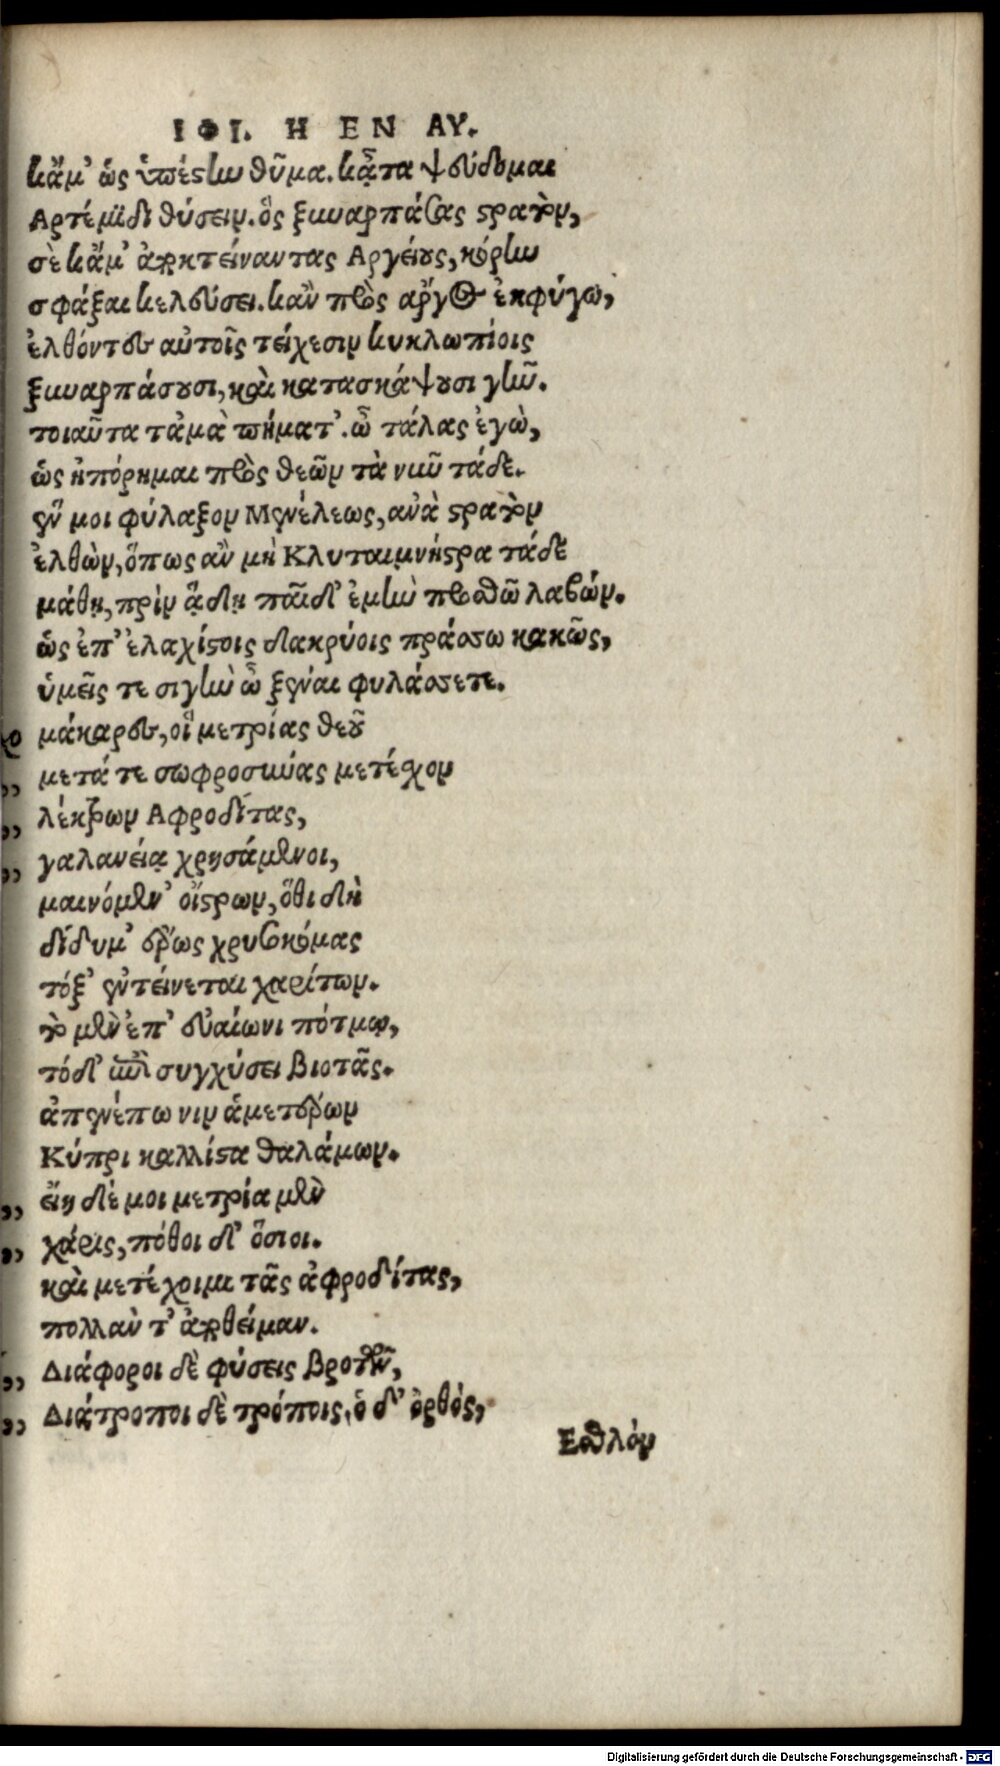 ΙΦΙ. Η ΕΝ ΑΥ.
κἄμ' ὡς ὑπέστην θῦμα. κᾆτα ψεύδομαι
Αρτέμιδι θύσειν. ὃς ξυναρπάσας στρατὸν,
σὲ κἄμ' ἀποκτείναντας Αργείους, κόρην
σφάξαι κελεύσει. κἂν πρὸς αργος ἐκφύγω,
ἐλθόντες αὐτοῖς τείχεσιν κυκλωπίοις
ξυναρπάσουσι, καὶ κατασκάψουσι γῆν.
τοιαῦτα τἀμὰ πήματ'. ὦ τάλας ἐγὼ,
ὡς ἠπόρημαι πρὸς θεῶν τὰ νῦν τάδε.
ἕν μοι φύλαξον Μενέλεως, ανὰ στρατὸν
ἐλθὼν, ὅπως αν μὴ Κλυταιμνήστρα τάδε
μάθῃ, πρὶν ᾅδῃ παῖδ' ἐμὴν προσθῶ λαβών.
ὡς ἐπ' ἐλαχίστοις δακρύοις πράσσω κακῶς,
ὑμεῖς τε σιγὴν ὦ ξέναι φυλάσσετε.
χο μάκαρες, οἳ μετρίας θεοῦ
,, μετά τε σωφροσύνας μετέχον
,, λέκτρων Αφροδίτας,
,, γαλανείᾳ χρησάμενοι,
μαινόμεν' οἴστρων, ὅθι δὴ
δίδυμ' ἔρως χρυσοκόμας
τόξ' ἐντείνεται χαρίτων.
τὸ μὲν ἐπ' εὐαίωνι πότμῳ,
τὸ δ' ἐπὶ συγχύσει βιοτᾶς.
ἀπενέπω νιν ἁμετέρων
Κύπρι καλλίστα θαλάμων.
,, εἴη δέ μοι μετρία μὲν
,, χάρις, πόθοι δ' ὅσιοι.
καὶ μετέχοιμι τᾶς ἀφροδίτας,
πολλὰν τ' ἀποθείμαν.
,, Διάφοροι δὲ φύσεις βροτῶν,
,, Διάτροποι δὲ τρόποις, ὁ δ' ὀρθός,
Εσθλὸν
Digitalisierung gefördert durch die Deutsche Forschungsgemeinschaft - DFG